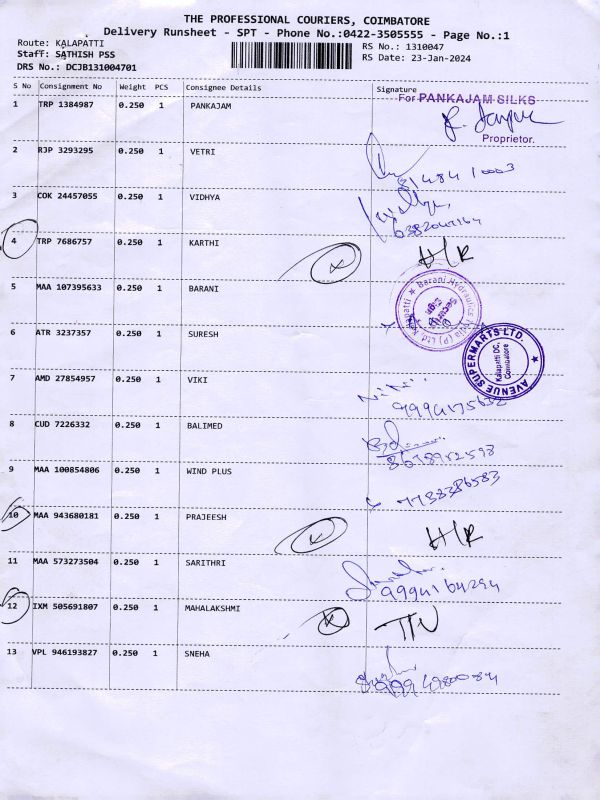 THE PROFESSIONAL COURIERS, COIMBATORE
Delivery Runsheet - SPT - Phone No.:0422-3505555 - Page No.:1
Route: KALAPATTI
Staff: SATHISH PSS
DRS No.: DCJB131004701
RS No.: 1310047
RS Date: 23-Jan-2024
S No Consignment No Weight PCS Consignee Details Signature
1 TRP 1384987 0.250 1 PANKAJAM
For PANKAJAM SILKS
Proprietor.
2 RJP 3293295 0.250 1 VETRI
3 COK 24457055 0.250 1 VIDHYA
4 TRP 7686757 0.250 1 KARTHI H/R
5 MAA 107395633 0.250 1 BARANI
6 ATR 3237357 0.250 1 SURESH
AVENUE SUPERMARTS LTD.
Kalapatti DC,
Coimbatore
7 AMD 27854957 0.250 1 VIKI
9994175632
8 CUD 7226332 0.250 1 BALIMED
8678952598
9 MAA 100854806 0.250 1 WIND PLUS
10 MAA 943680181 0.250 1 PRAJEESH H/R
11 MAA 573273504 0.250 1 SARITHRI
9994164294
12 IXM 505691807 0.250 1 MAHALAKSHMI
13 VPL 946193827 0.250 1 SNEHA